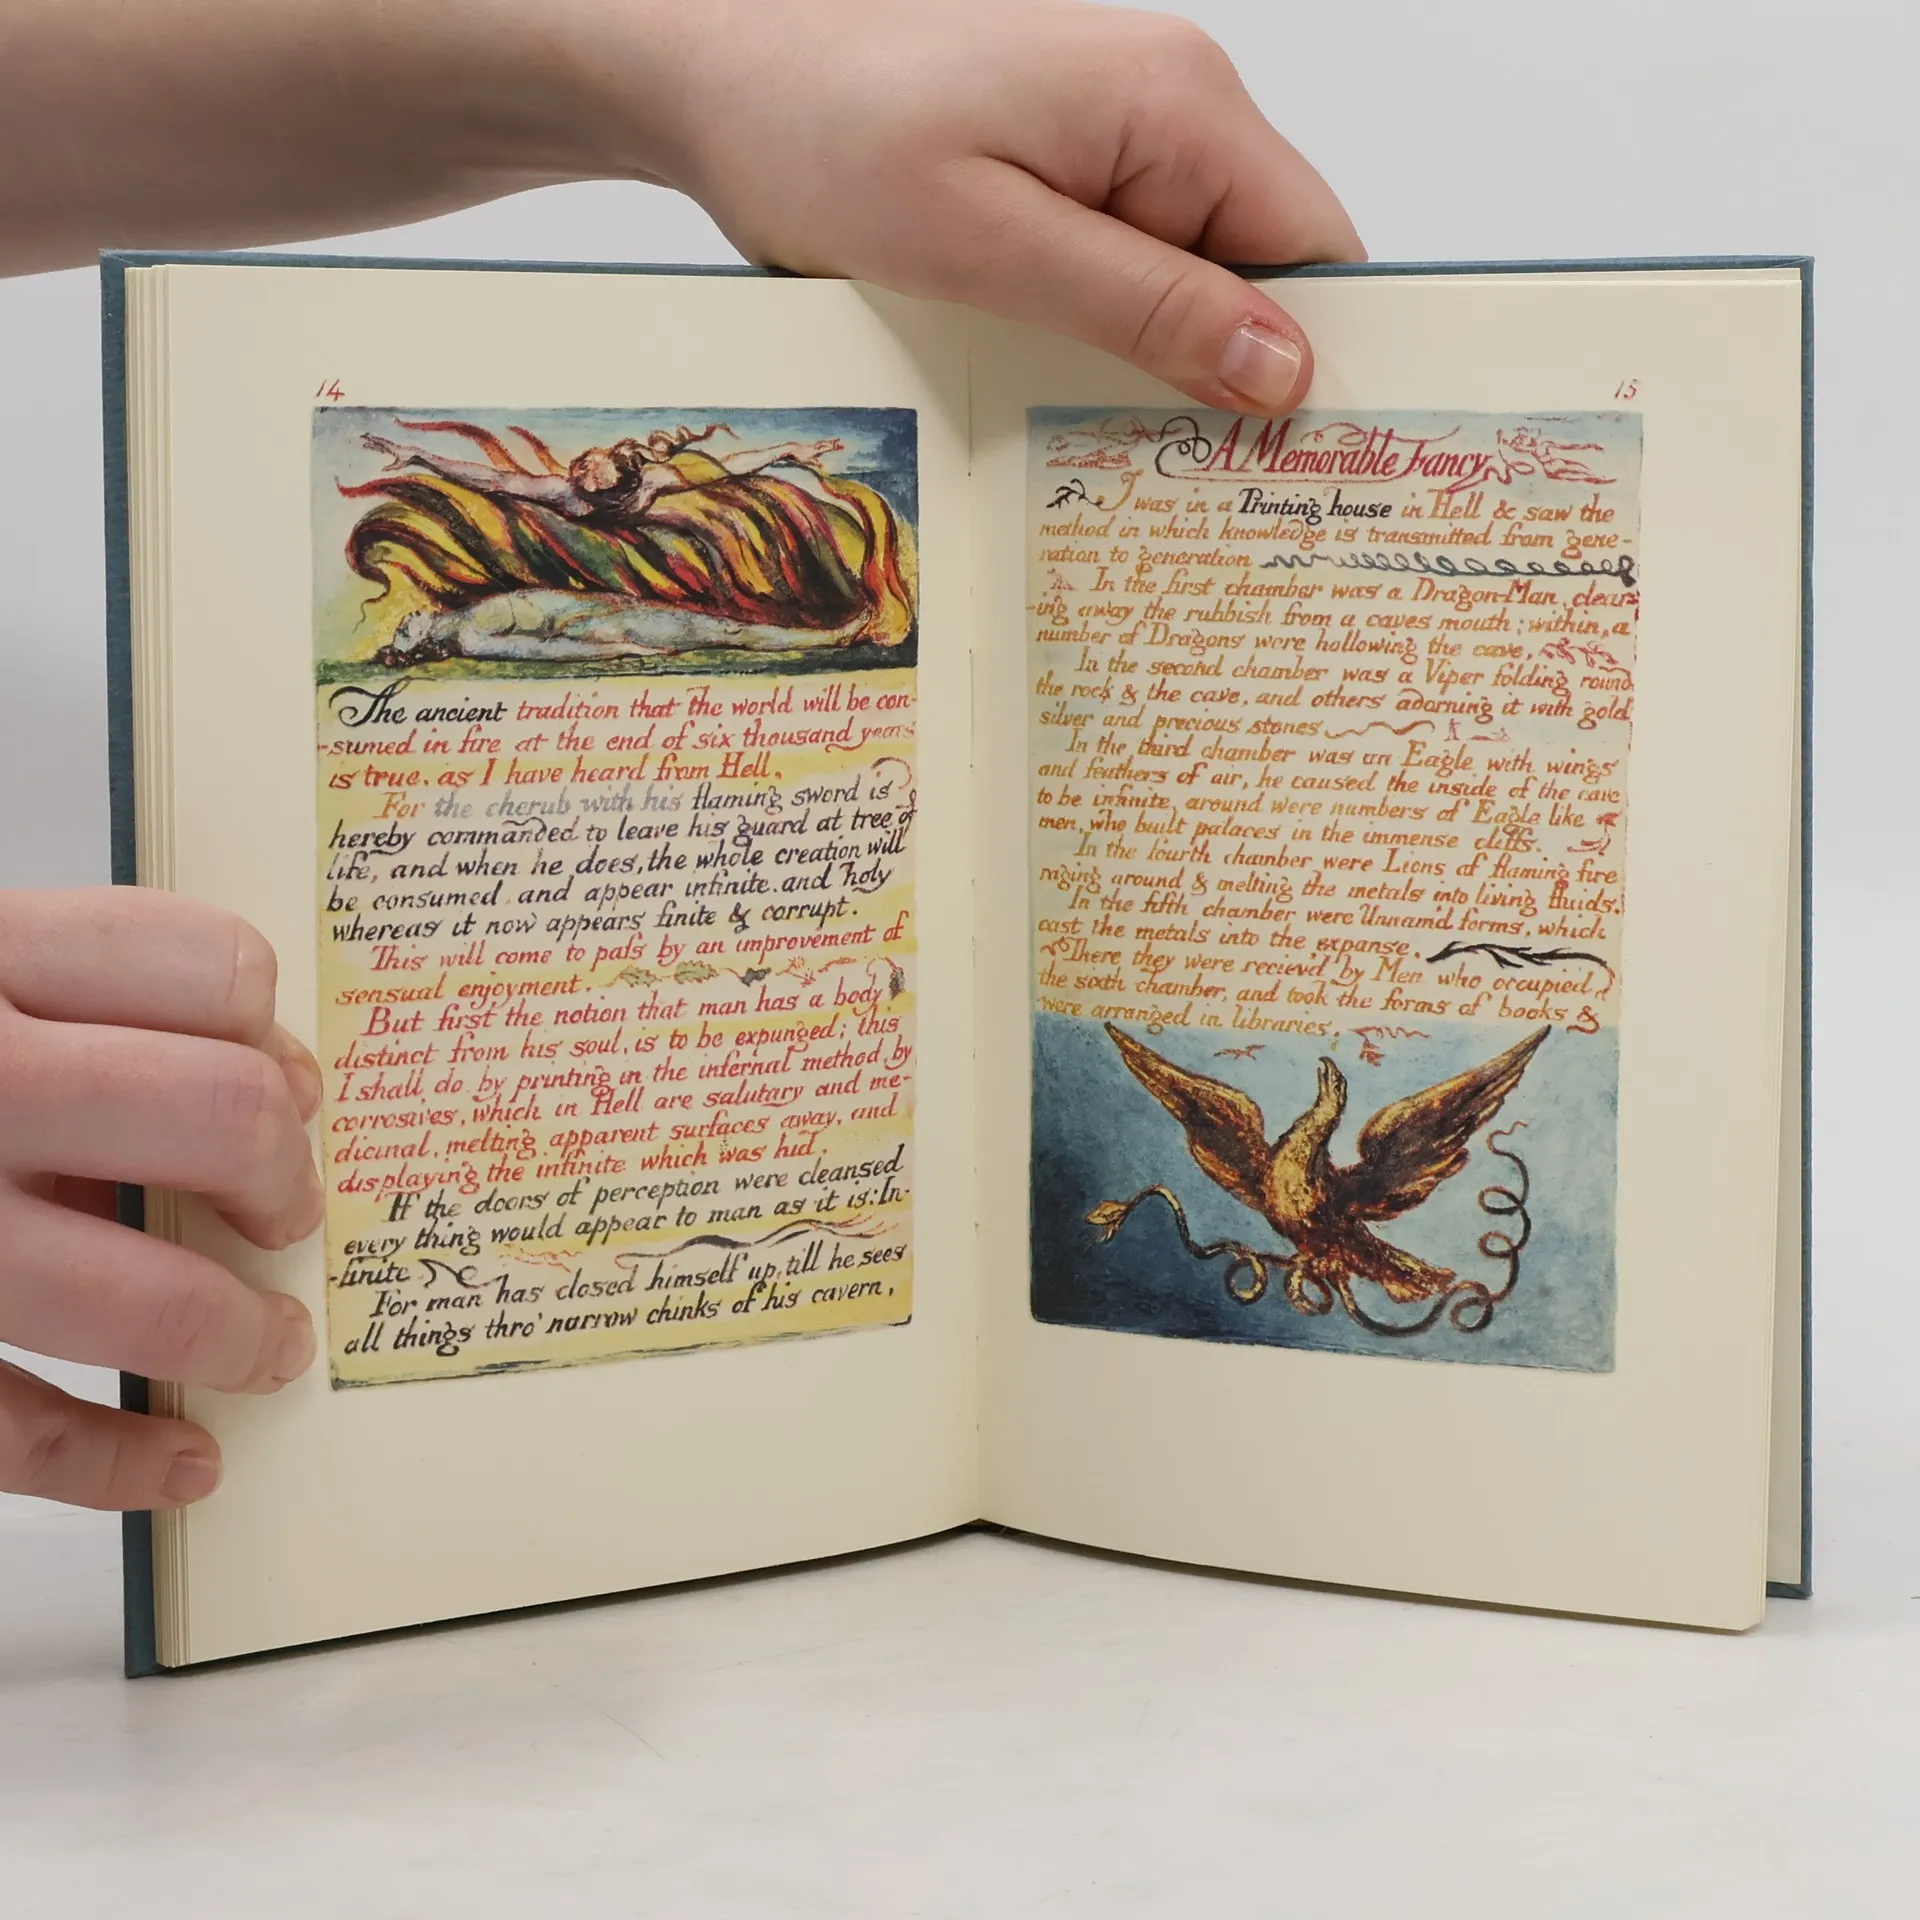 14
The ancient tradition that the world will be con-
-sumed in fire at the end of six thousand years
is true. as I have heard from Hell.
For the cherub with his flaming sword is
hereby commanded to leave his guard at tree of
life, and when he does, the whole creation will
be consumed and appear infinite. and holy
whereas it now appears finite & corrupt.
This will come to pass by an improvement of
sensual enjoyment.
But first the notion that man has a body
distinct from his soul, is to be expunged; this
I shall do, by printing in the infernal method, by
corrosives, which in Hell are salutary and me-
dicinal, melting apparent surfaces away, and
displaying the infinite which was hid.
If the doors of perception were cleansed
every thing would appear to man as it is: In-
-finite
For man has closed himself up, till he sees
all things thro' narrow chinks of his cavern.
15
A Memorable Fancy
I was in a Printing house in Hell & saw the
method in which knowledge is transmitted from gene-
ration to generation
In the first chamber was a Dragon-Man, clear-
-ing away the rubbish from a caves mouth; within, a
number of Dragons were hollowing the cave,
In the second chamber was a Viper folding round
the rock & the cave, and others adorning it with gold
silver and precious stones
In the third chamber was an Eagle with wings
and feathers of air, he caused the inside of the cave
to be infinite, around were numbers of Eagle like
men, who built palaces in the immense cliffs.
In the fourth chamber were Lions of flaming fire
raging around & melting the metals into living fluids.
In the fifth chamber were Unnam'd forms, which
cast the metals into the expanse.
There they were reciev'd by Men who occupied
the sixth chamber, and took the forms of books &
were arranged in libraries.